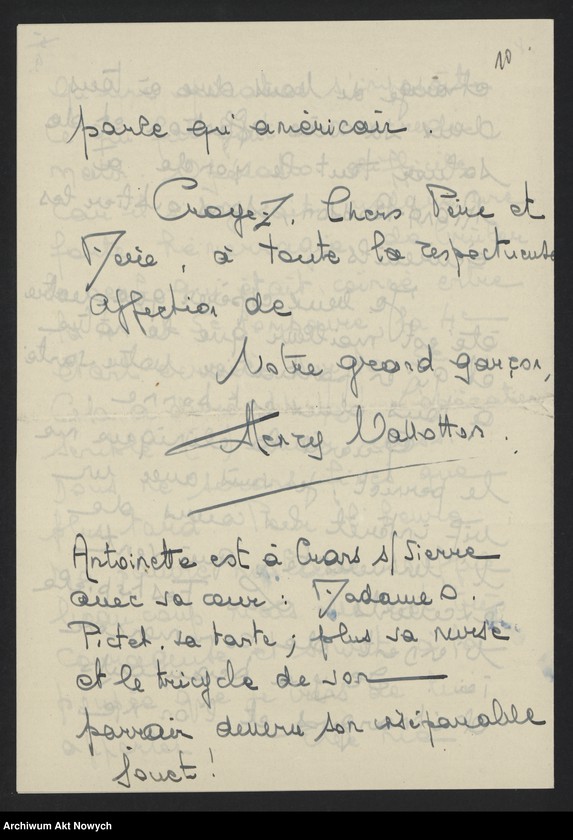 10
parle qu'américain.
Croyez, Chers Père et
Mère, à toute la respectueuse
affection de
Votre grand garçon,
Henry Vallotton.
Antoinette est à Crans s/Sierre
avec sa sœur : Madame O.
Pictet, sa tante ; plus sa nurse
et le tricycle de son
parrain devenu son inséparable
jouet !
Archiwum Akt Nowych